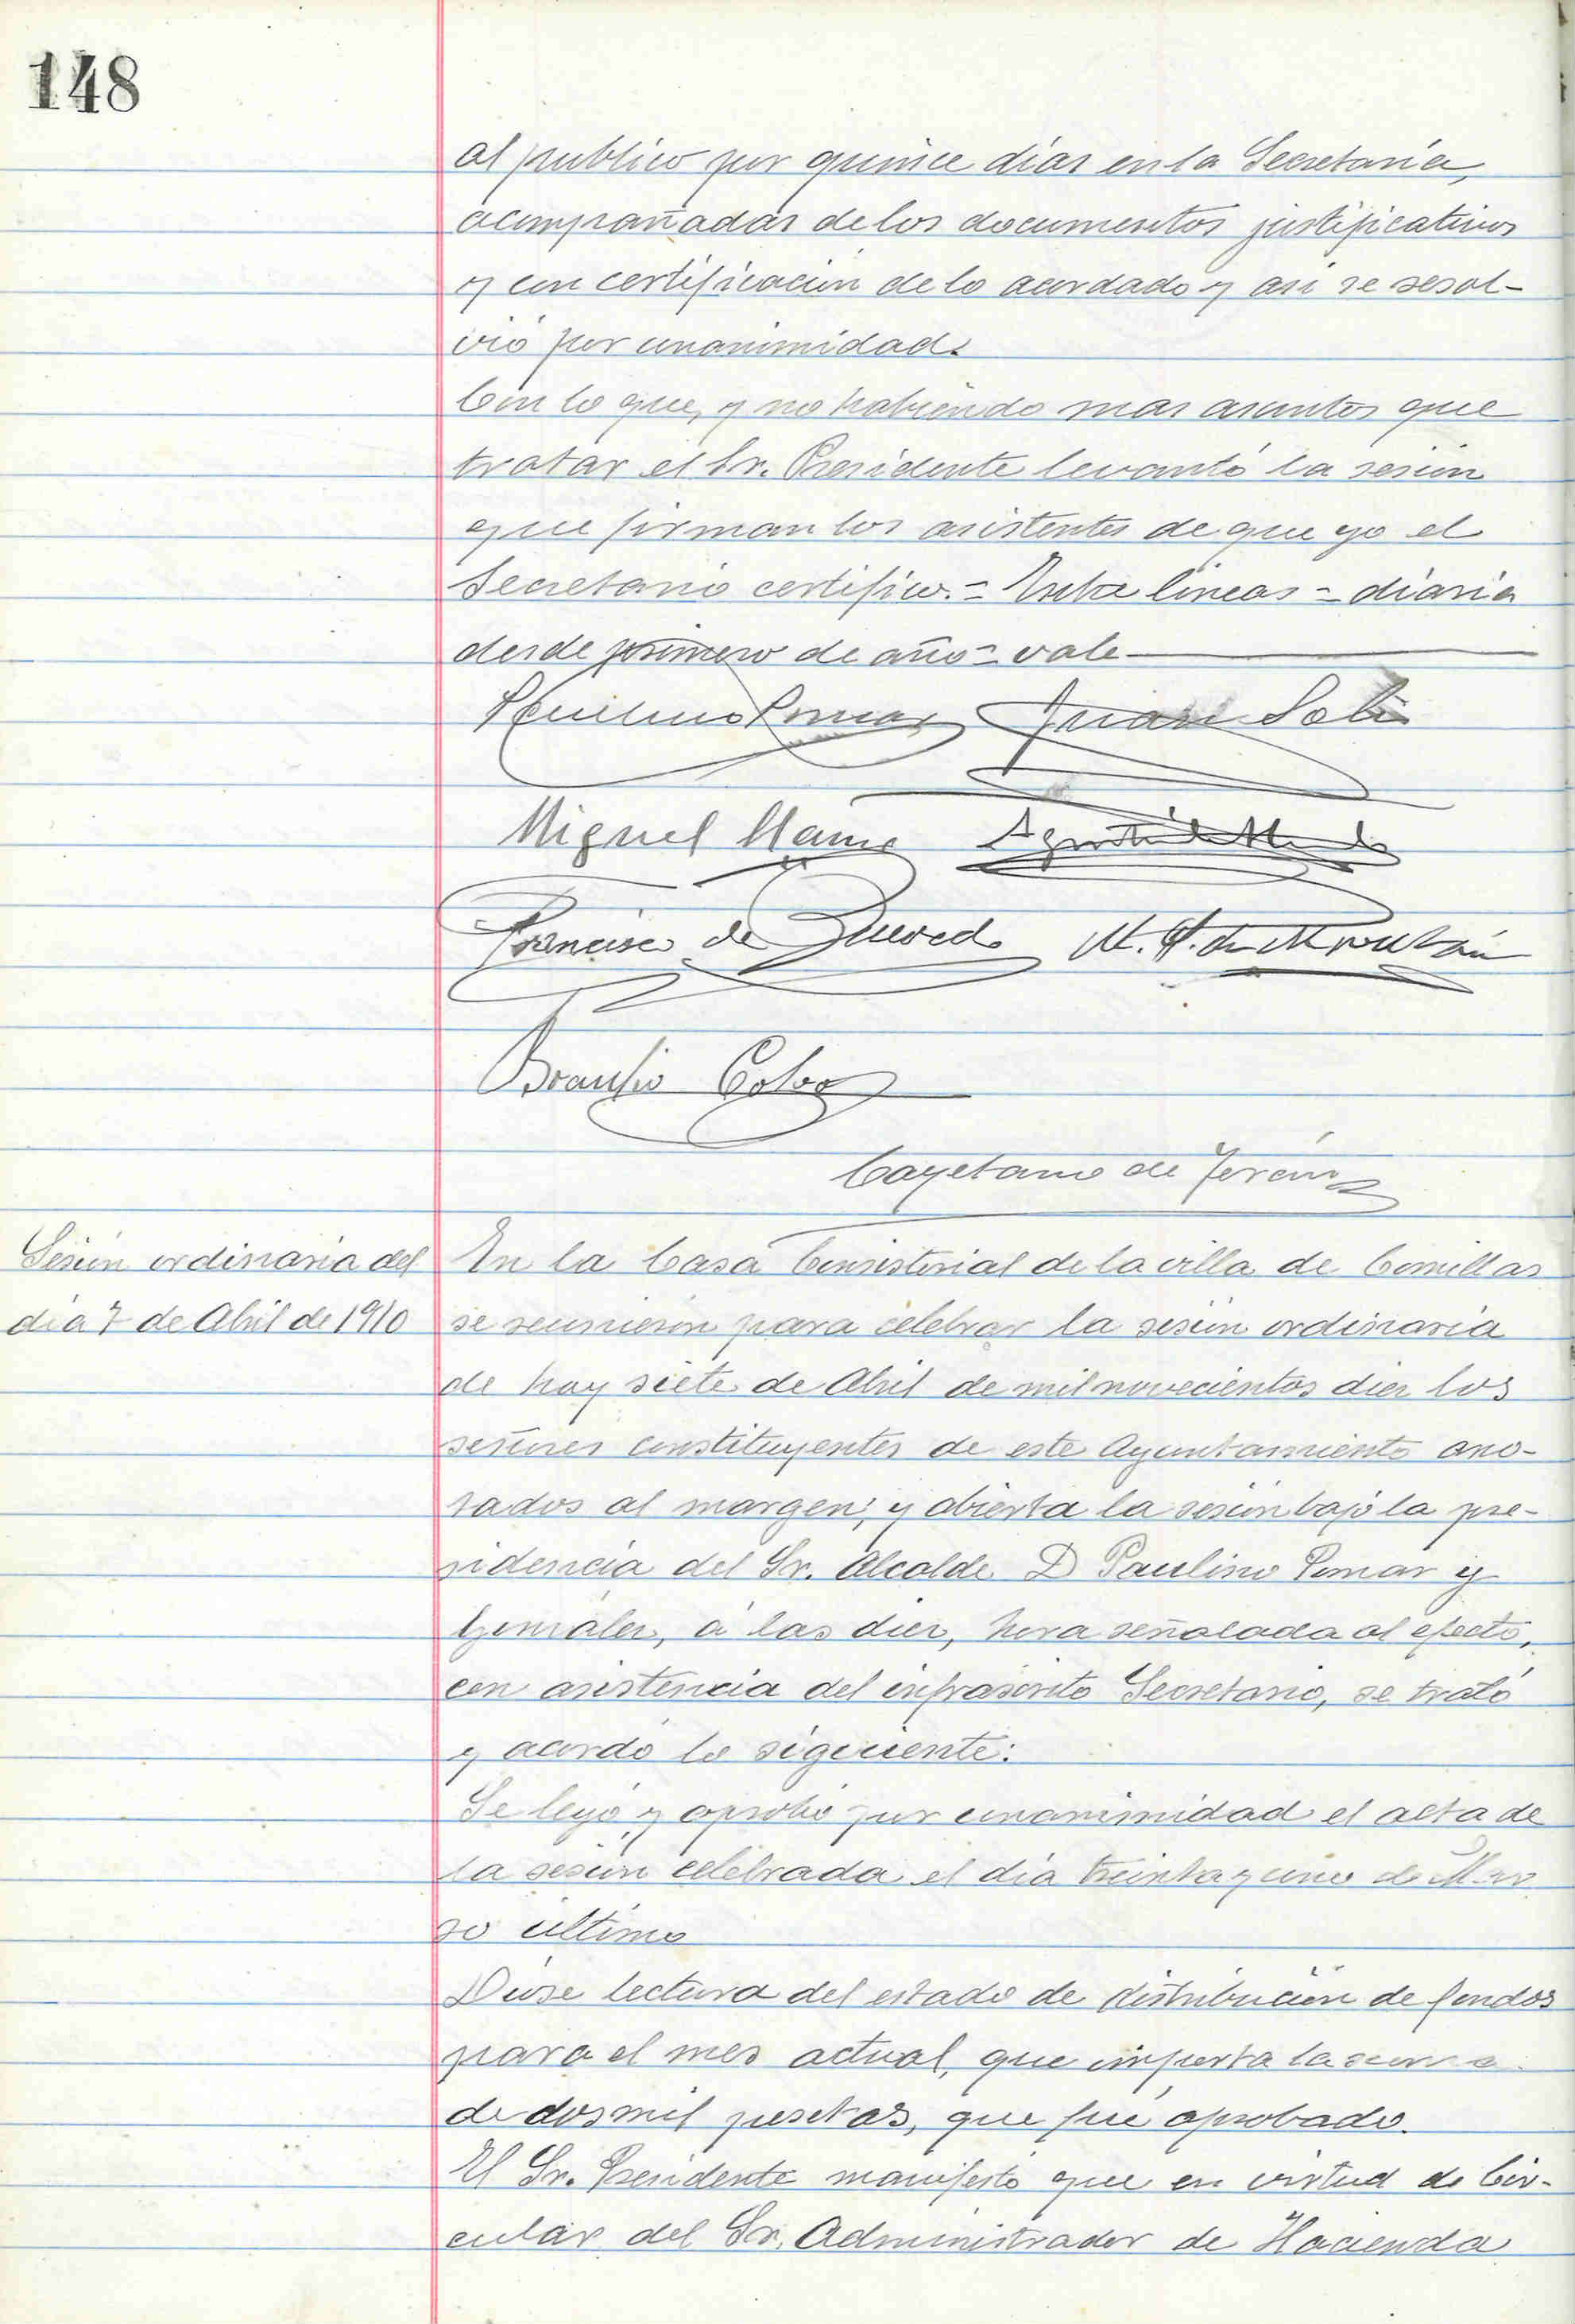 148
al publico por quince días en la Secretaría,
acompañadas de los documentos justificativos
y con certificación de lo acordado y asi se resol-
vió por unanimidad.
Con lo que, y no habiendo mas asuntos que
tratar el Sr. Presidente levantó la sesión
que firman los asistentes de que yo el
Secretario certifico.= Entre lineas = diaria
desde primero de año = vale
Paulino Pomar Juan Solis
Miguel Llano Agustin de
Francisco de Quevedo M. de
Braulio Cobo
Cayetano de Terán
Sesión ordinaria del
día 7 de Abril de 1910
En la Casa Consistorial de la villa de Comillas
se reunieron para celebrar la sesión ordinaria
de hoy siete de Abril de mil novecientos diez los
señores constituyentes de este Ayuntamiento ano-
tados al margen; y abierta la sesión bajo la pre-
sidencia del Sr. Alcalde D Paulino Pomar y
González, á las diez, hora señalada al efecto,
con asistencia del infrascrito Secretario, se trató
y acordó lo siguiente:
Se leyó y aprobó por unanimidad el acta de
la sesión celebrada el día treinta y uno de Mar
zo último
Dióse lectura del estado de distribución de fondos
para el mes actual, que importa la suma
de dos mil pesetas, que fué aprobado.
El Sr. Presidente manifestó que en virtud de Cir-
cular del Sr. Administrador de Hacienda